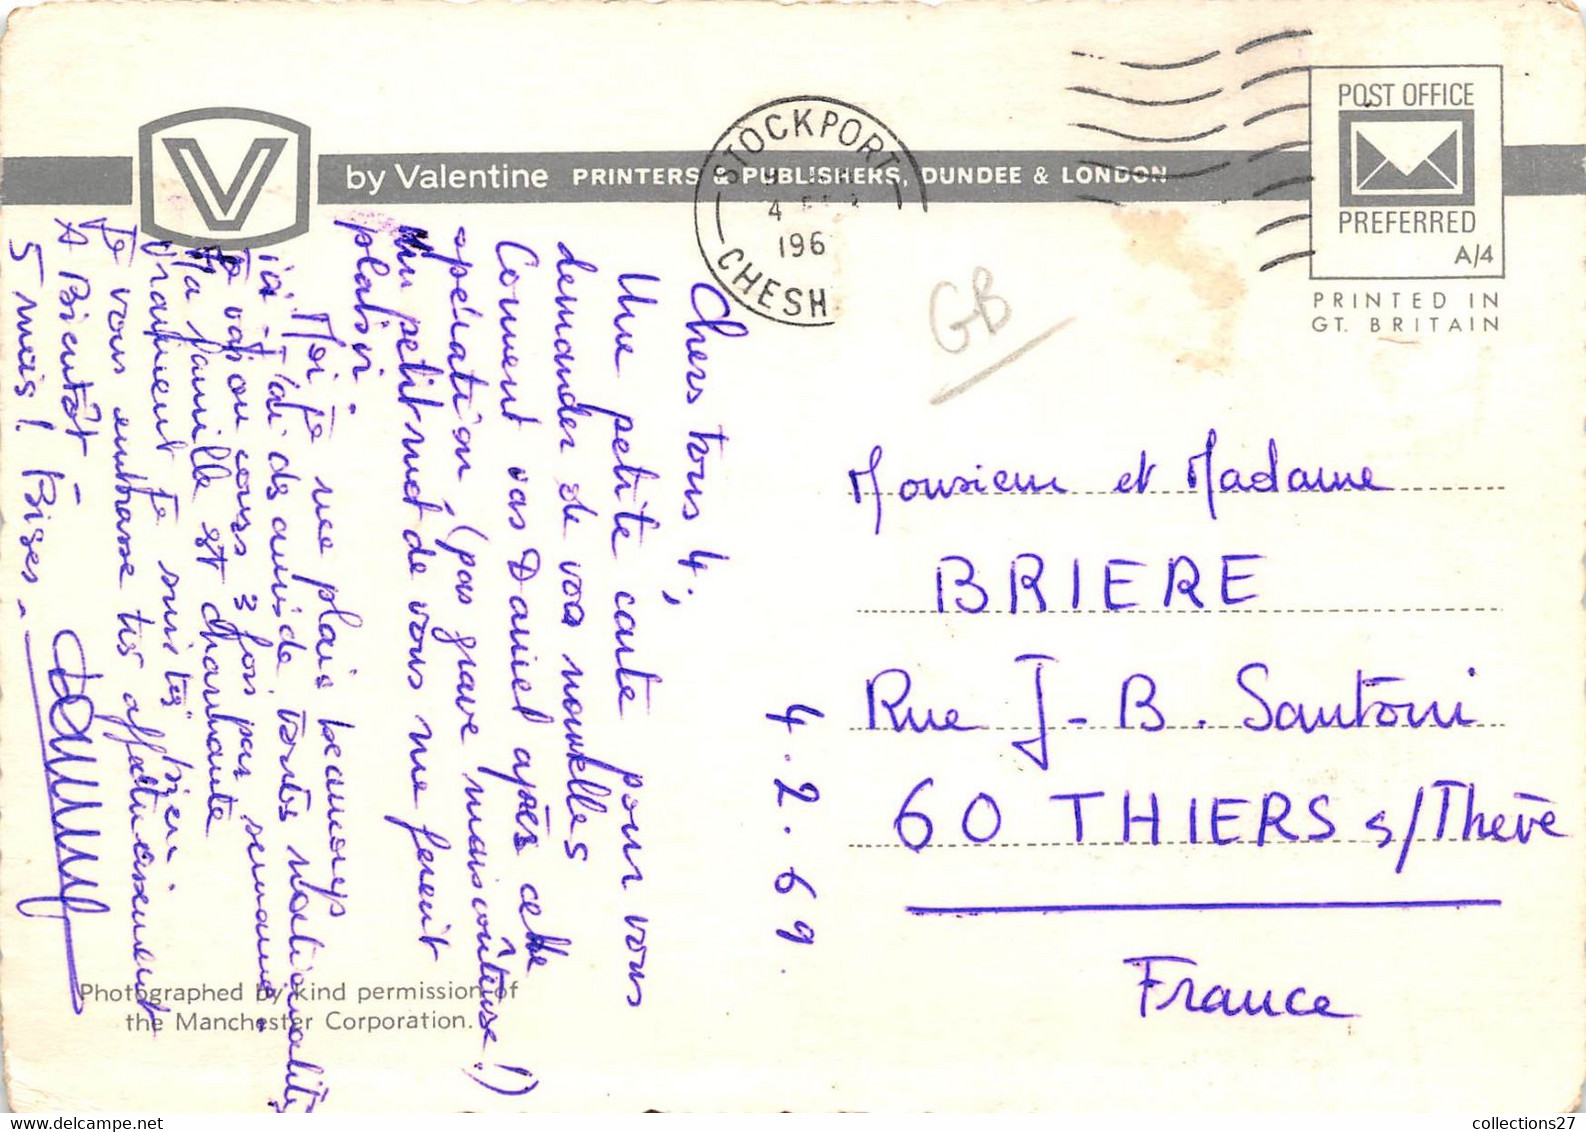 V by Valentine PRINTERS & PUBLISHERS, DUNDEE & LONDON
STOCKPORT
4 FEB
196
CHESH
POST OFFICE
PREFERRED
A/4
PRINTED IN
GT. BRITAIN
GB
4.2.69.
Chers tous 4,
Une petite carte pour vous
demander de vos nouvelles
Comment vas Daniel après cette
opération, (pas grave mais coûteuse!)
Un petit mot de vous me ferait
plaisir.
Moi je me plais beaucoup
ici - J'ai des amis de toutes nationalités
Je vais au cours 3 fois par semaine.
Ma famille est charmante
vraiment je suis très bien
Je vous embrasse très affectueusement
A Bientôt -
5 mois! Bises -
Monsieur et Madame
BRIERE
Rue J-B. Santoni
60 THIERS s/Thève
France
Photographed by kind permission of
the Manchester Corporation.
collections27